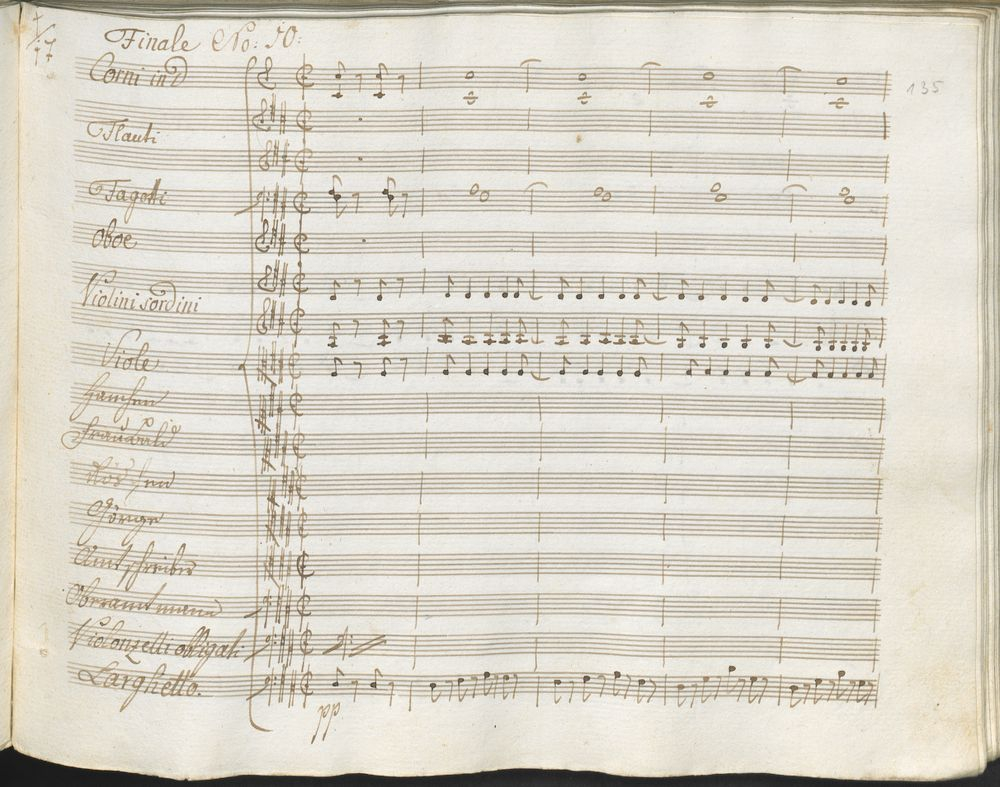 Finale No: 10:
135
17
Corni in D
Flauti
Fagotti
Oboe
Violini sordini
Viole
Hannchen
Röschen
Görge
Amtschreiber
Oberamtmann
Violonzelli obligati
Larghetto.
pp